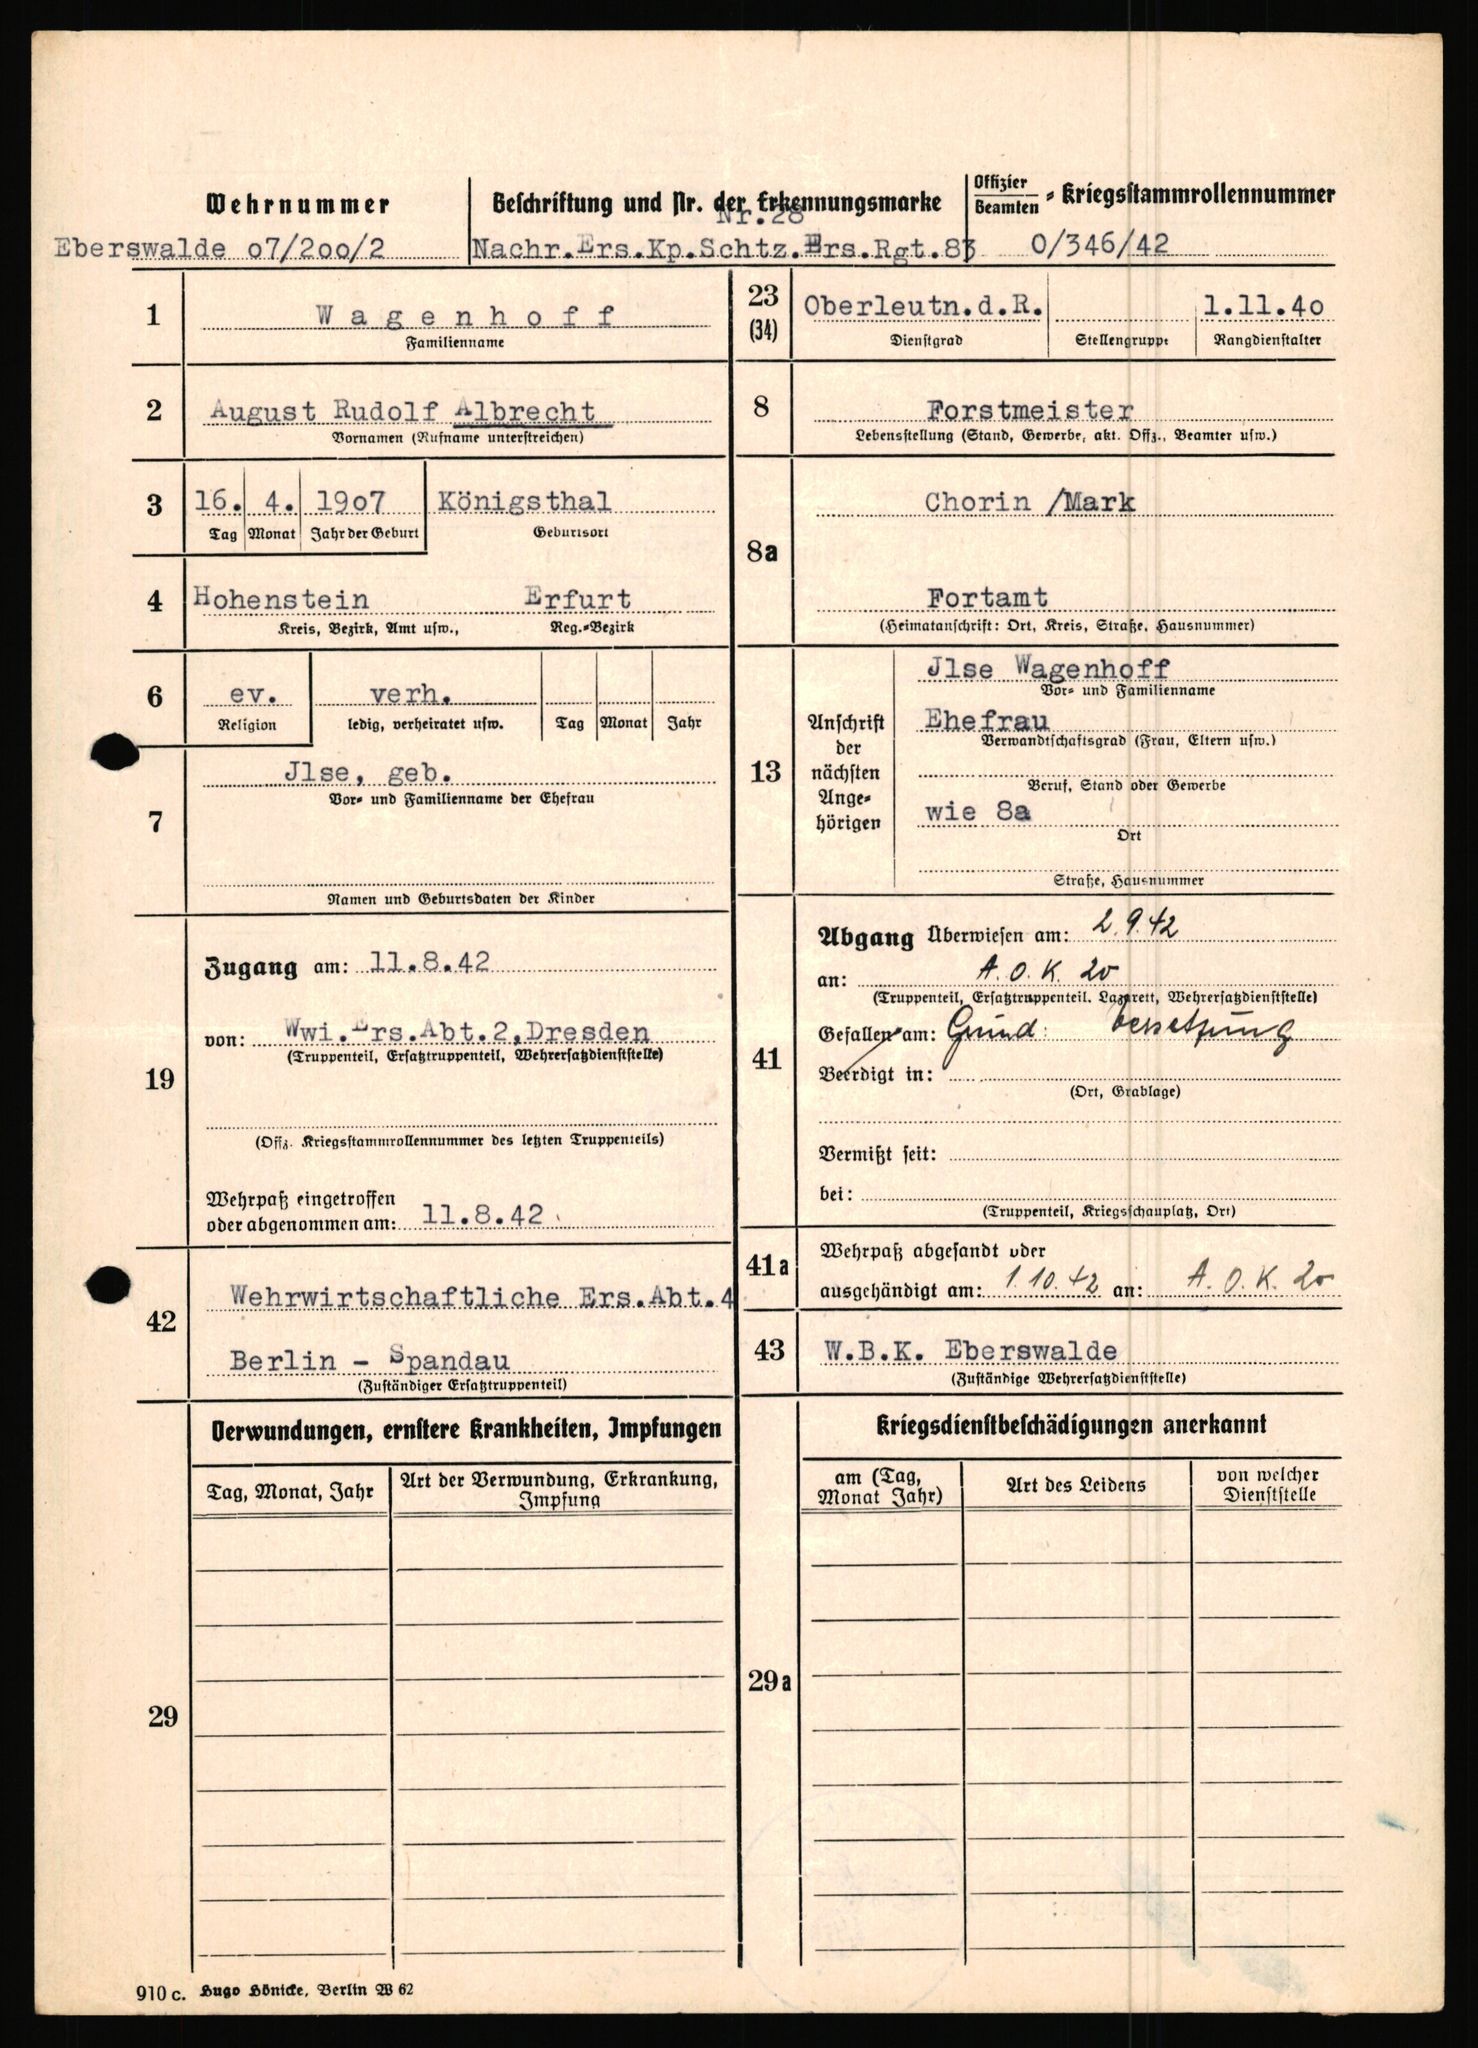 Wehrnummer
Eberswalde o7/2oo/2
Beschriftung und Nr. der Erkennungsmarke
Nr.28
Nachr.Ers.Kp.Schtz.Ers.Rgt.83
Offizier
Beamten
-Kriegsstammrollennummer
O/346/42
1
Wagenhoff
Familienname
2
August Rudolf Albrecht
Vornamen (Rufname unterstreichen)
3
16. 4. 19o7 Königsthal
Tag Monat Jahr der Geburt Geburtsort
4
Hohenstein Erfurt
Kreis, Bezirk, Amt usw., Reg.-Bezirk
6
ev. verh.
Religion ledig, verheiratet usw. Tag Monat Jahr
7
Jlse, geb.
Vor- und Familienname der Ehefrau
Namen und Geburtsdaten der Kinder
19
Zugang am: 11.8.42
von: Wwi.Ers.Abt.2,Dresden
(Truppenteil, Ersatztruppenteil, Wehrersatzdienststelle)
(Offz. Kriegsstammrollennummer des letzten Truppenteils)
Wehrpaß eingetroffen
oder abgenommen am: 11.8.42
42
Wehrwirtschaftliche Ers.Abt.4
Berlin - Spandau
(Zuständiger Ersatztruppenteil)
23
(34)
Oberleutn.d.R. 1.11.4o
Dienstgrad Stellengruppe Rangdienstalter
8
Forstmeister
Lebensstellung (Stand, Gewerbe, akt. Offz., Beamter usw.)
8a
Chorin /Mark
Fortamt
(Heimatanschrift: Ort, Kreis, Straße, Hausnummer)
13
Anschrift
der
nächsten
Ange-
hörigen
Jlse Wagenhoff
Vor- und Familienname
Ehefrau
Verwandtschaftsgrad (Frau, Eltern usw.)
Beruf, Stand oder Gewerbe
wie 8a
Ort
Straße, Hausnummer
41
Abgang Überwiesen am: 2.9.42
an: A.O.K. 20
(Truppenteil, Ersatztruppenteil. Lazarett, Wehrersatzdienststelle)
Gefallen am: Grund: Versetzung
Beerdigt in:
(Ort, Grablage)
Vermißt seit:
bei:
(Truppenteil, Kriegsschauplatz, Ort)
41a
Wehrpaß abgesandt oder
ausgehändigt am: 1.10.42 an: A.O.K. 20
43
W.B.K. Eberswalde
(Zuständige Wehrersatzdienststelle)
29
Verwundungen, ernstere Krankheiten, Impfungen
Tag, Monat, Jahr
Art der Verwundung, Erkrankung,
Impfung
29a
Kriegsdienstbeschädigungen anerkannt
am (Tag,
Monat Jahr)
Art des Leidens
von welcher
Dienststelle
910 c. Hugo Hönicke, Berlin W 62